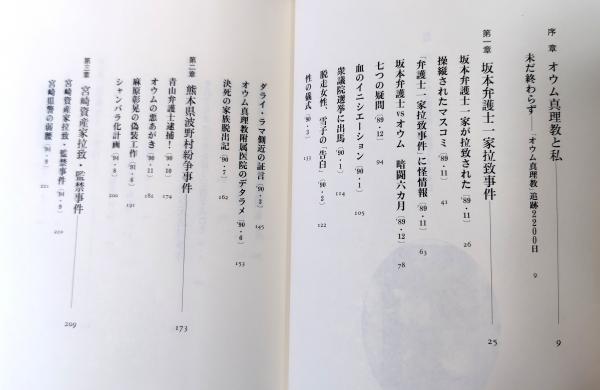 序章 オウム真理教と私 9
未だ終わらず——「オウム真理教」追跡2200日 9
第一章 坂本弁護士一家拉致事件 25
坂本弁護士一家が拉致された('89・11) 26
操縦されたマスコミ('89・11) 41
「弁護士一家拉致事件」に怪情報('89・11) 63
坂本弁護士vsオウム 暗闘六カ月('89・12) 78
七つの疑問('89・12) 94
血のイニシエーション('90・1) 105
衆議院選挙に出馬('90・1) 114
脱走女性、雪子の「告白」('90・2) 122
性の儀式('90・3) 133
ダライ・ラマ側近の証言('90・3) 145
オウム真理教附属医院のデタラメ('90・4) 153
決死の家族脱出記('90・7) 162
第二章 熊本県波野村紛争事件 173
青山弁護士逮捕!('90・10) 174
オウムの悪あがき('90・11) 184
麻原彰晃の偽装工作('91・4) 191
シャンバラ化計画('94・8) 200
第三章 宮崎資産家拉致・監禁事件 209
宮崎資産家拉致・監禁事件('94・9) 210
宮崎県警の弱腰('94・9) 221